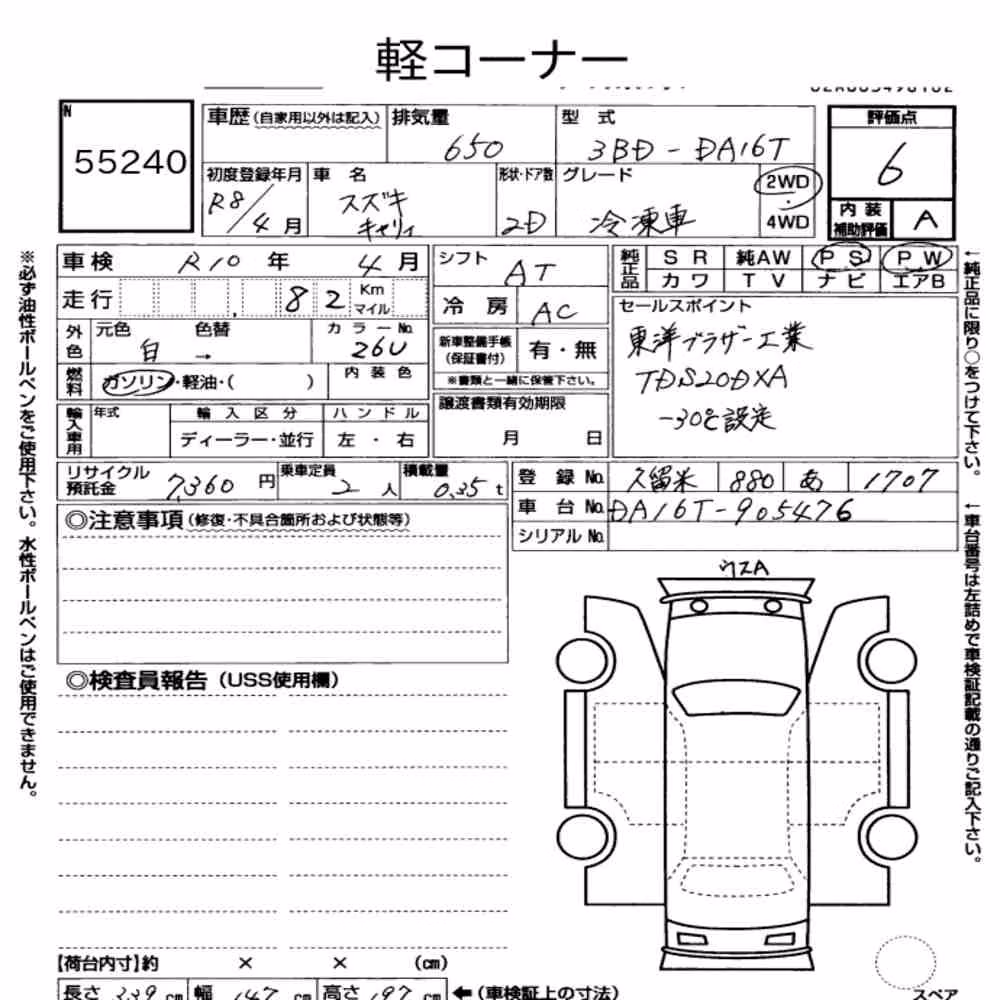 軽コーナー
N
55240
車歴(自家用以外は記入) 排気量 650 型式 3BD-DA16T 評価点 6
初度登録年月 R8/4月 車名 スズキ キャリィ 形状・ドア数 2D グレード 冷凍車 2WD・4WD 内装補助評価 A
車検 R10年 4月 シフト AT 純正品 SR 純AW PS PW
カワ TV ナビ エアB
走行 82 Km マイル 冷房 AC セールスポイント
外色 元色 白 色替 → カラーNo. 26U 新車整備手帳(保証書付) 有・無
※書類と一緒に保管下さい。
東洋ブラザー工業
TDS20DXA
-30℃設定
燃料 ガソリン・軽油・( ) 内装色
譲渡書類有効期限 月 日
輸入車用 年式 輸入区分 ディーラー・並行 ハンドル 左・右
リサイクル預託金 7,360円 乗車定員 2人 積載量 0.35t
登録No. 久留米 880 あ 1707
車台No. DA16T-905476
シリアルNo.
◎注意事項(修復・不具合箇所および状態等)
◎検査員報告(USS使用欄)
ウスA
【荷台内寸】約 × × (cm)
長さ 339cm 幅 147cm 高さ 197cm ←(車検証上の寸法)
スペア
※必ず油性ボールペンをご使用下さい。水性ボールペンはご使用できません。
←純正品に限り○をつけて下さい。
←車台番号は左詰めで車検証記載の通りご記入下さい。